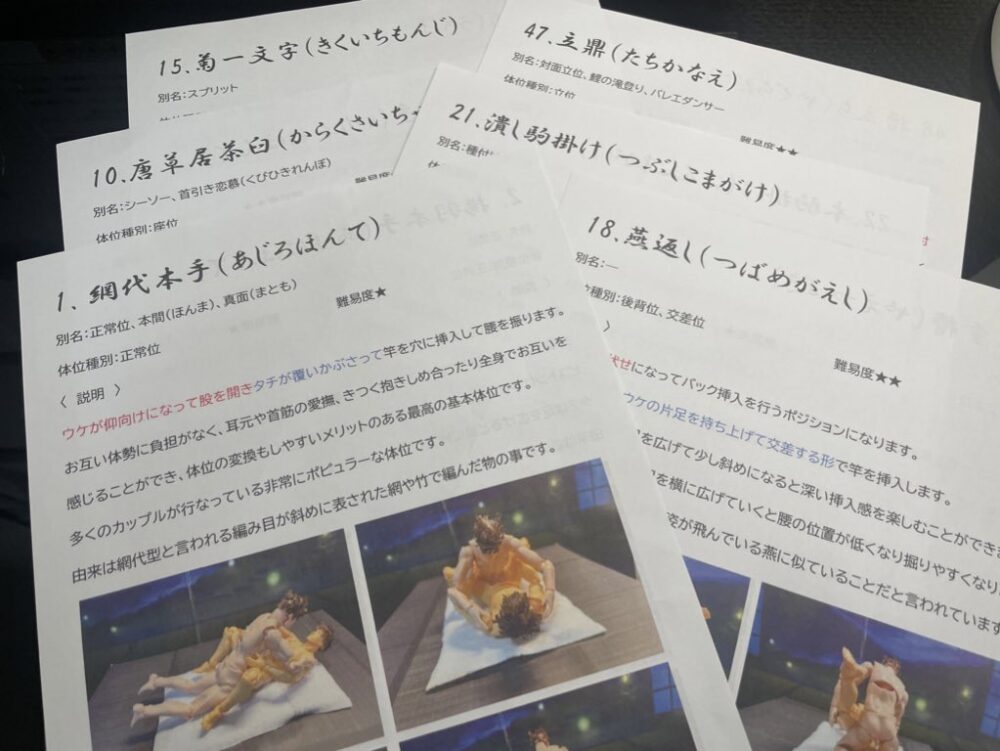 15.菊一文字(きくいちもんじ)
別名:スプリット
47.立鼎(たちかなえ)
別名:対面立位、鯉の滝登り、バレエダンサー
体位種別:立位
難易度★★
10.唐草居茶臼(からくさいち
別名:シーソー、首引き恋慕(くびひきれんぼ)
体位種別:座位
21.潰し駒掛け(つぶしこまがけ)
別名:種付
1.網代本手(あじろほんて)
別名:正常位、本間(ほんま)、真面(まとも)
難易度★
体位種別:正常位
〈 説明 〉
ウケが仰向けになって股を開きタチが覆いかぶさって竿を穴に挿入して腰を振ります。
お互い体勢に負担がなく、耳元や首筋の愛撫、きつく抱きしめ合ったり全身でお互いを
感じることができ、体位の変換もしやすいメリットのある最高の基本体位です。
多くのカップルが行なっている非常にポピュラーな体位です。
由来は網代型と言われる編み目が斜めに表された網や竹で編んだ物の事です。
18.燕返し(つばめがえし)
別名:―
種別:後背位、交差位
難易度★★
〉
せになってバック挿入を行うポジションになります。
ウケの片足を持ち上げて交差する形で竿を挿入します。
を広げて少し斜めになると深い挿入感を楽しむことができ
を横に広げていくと腰の位置が低くなり掘りやすくなり
姿が飛んでいる燕に似ていることだと言われています